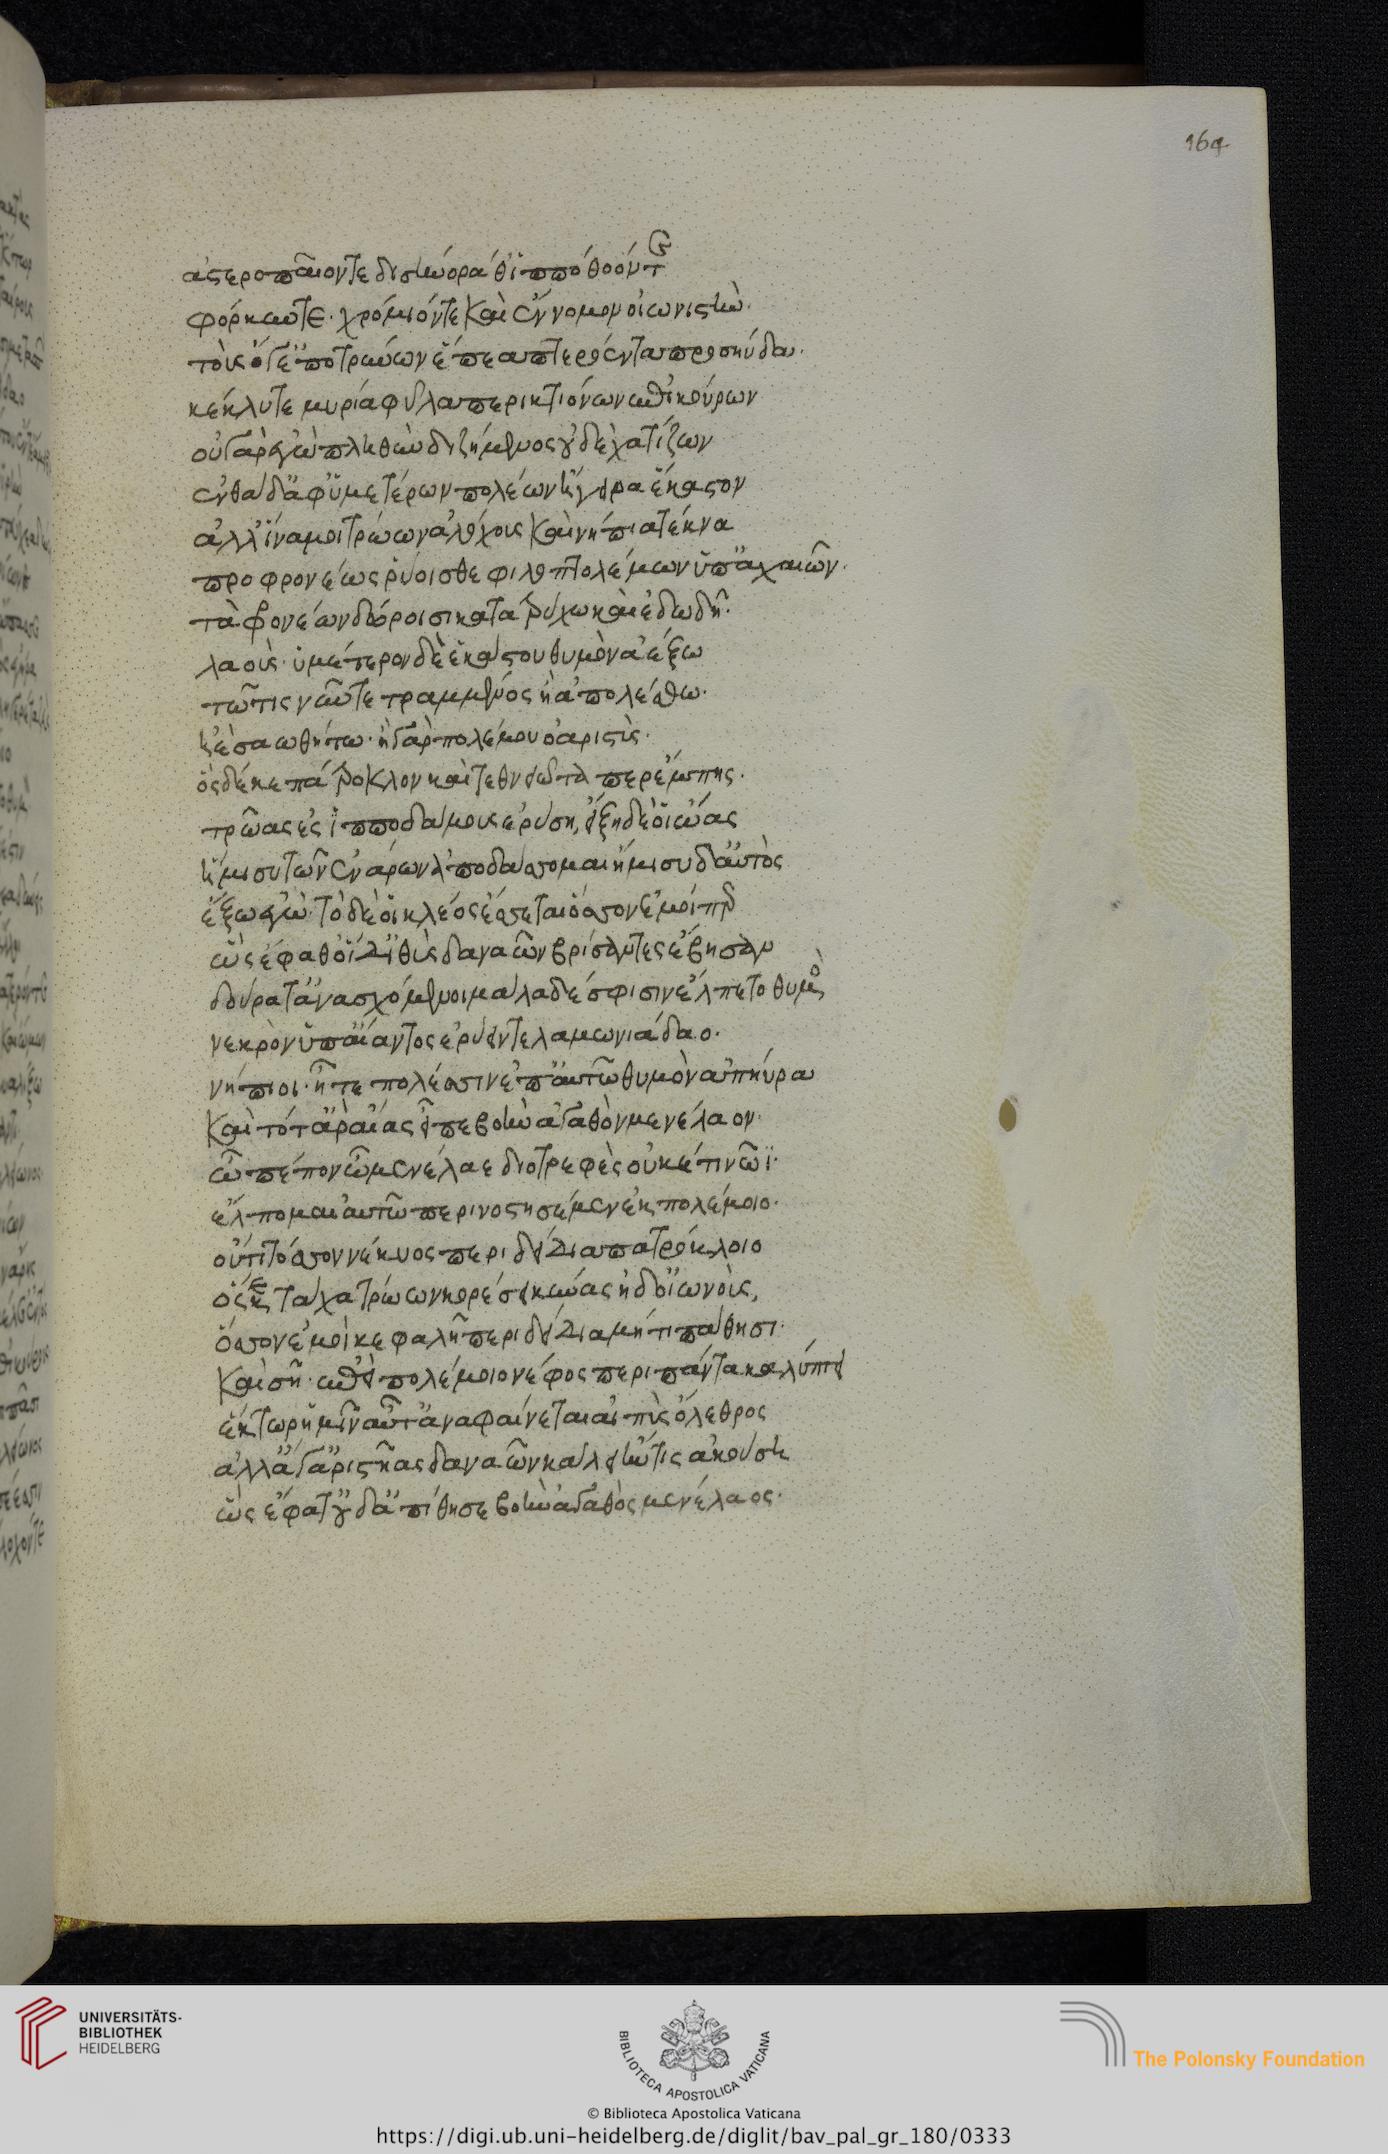 164
ἀστεροπαῖόντε δεισήνορά θ' ἱππόθοόν τε
φόρκυντε. χρομίόντε καὶ ἔννομον οἰωνιστὴν.
τοὺς ὅγ' ἐποτρύνων ἔπεα πτερόεντα προσηύδα.
κέκλυτε μυρία φῦλα περικτιόνων ἐπικούρων
οὐ γὰρ ἐγὼ πληθὺν διζήμενος οὐδὲ χατίζων
ἐνθάδ' ἀφ' ὑμετέρων πολέων ἤγειρα ἕκαστον
ἀλλ' ἵνα μοι τρώων ἀλόχους καὶ νήπια τέκνα
προφρονέως ῥύοισθε φιλοπτολέμων ὑπ' ἀχαιῶν.
τὰ φρονέων δώροισι κατατρύχω καὶ ἐδωδῇ.
λαοὺς. ὑμέτερον δὲ ἑκάστου θυμὸν ἀέξω
τῶ τις νῦν τετραμμένος ἢ ἀπολέσθω.
ἠὲ σαωθήτω. ἡ γὰρ πολέμου ὀαριστὺς.
ὃς δέ κε πάτροκλον καὶ τεθνειῶτα περ ἔμπης.
τρῶας ἐς ἱπποδάμους ἐρύσῃ, εἴξῃ δέ οἱ αἴας
ἥμισυ τῶν ἐνάρων ἀποδάσσομαι ἥμισυ δ' αὐτὸς
ἕξω ἐγὼ. τὸ δέ οἱ κλέος ἔσσεται ὅσσον ἐμοί περ
ὣς ἔφαθ' οἱ δ' ἰθὺς δαναῶν βρίσαντες ἔβησαν
δούρατ' ἀνασχόμενοι μάλα δέ σφισιν ἔλπετο θυμὸς
νεκρὸν ὑπ' αἴαντος ἐρύειν τελαμωνιάδαο.
νήπιοι. ἦ τε πολέσσιν ἐπ' αὐτῶ θυμὸν ἀπηύρα
καὶ τότ' ἄρ' αἴας εἶπε βοὴν ἀγαθὸν μενέλαον.
ὦ πέπον ὦ μενέλαε διοτρεφὲς οὐκέτι νῶϊ.
ἔλπομαι αὐτώ περ νοστησέμεν ἐκ πολέμοιο.
οὔτι τόσσον νέκυος περιδείδια πατρόκλοιο
ὅς κε τάχα τρώων κορέει κύνας ἠδ' οἰωνοὺς,
ὅσσον ἐμῇ κεφαλῇ περιδείδια μή τι πάθησι.
καὶ σῇ. ἐπεὶ πολέμοιο νέφος περὶ πάντα καλύπτει
ἕκτωρ ἡμῖν αὖτ' ἀναφαίνεται αἰπὺς ὄλεθρος
ἀλλ' ἄγ' ἀριστῆας δαναῶν κάλει ἤν τις ἀκούσῃ
ὣς ἔφατ' οὐδ' ἀπίθησε βοὴν ἀγαθὸς μενέλαος.
UNIVERSITÄTS-
BIBLIOTHEK
HEIDELBERG
BIBLIOTECA APOSTOLICA VATICANA
The Polonsky Foundation
© Biblioteca Apostolica Vaticana
https://digi.ub.uni-heidelberg.de/diglit/bav_pal_gr_180/0333